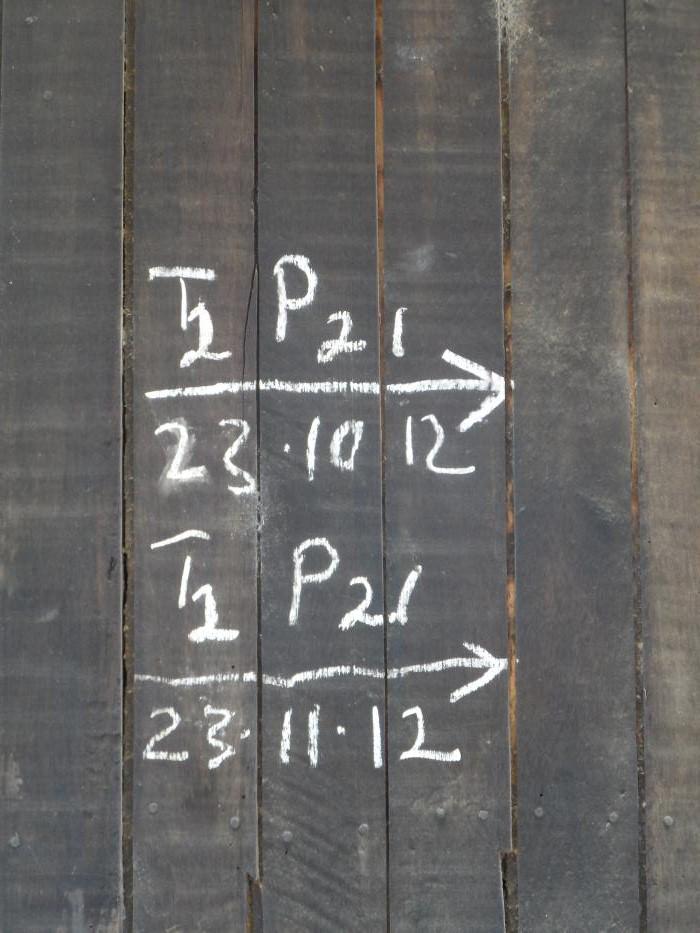 T2 P21
23.10 12
T2 P21
23.11.12